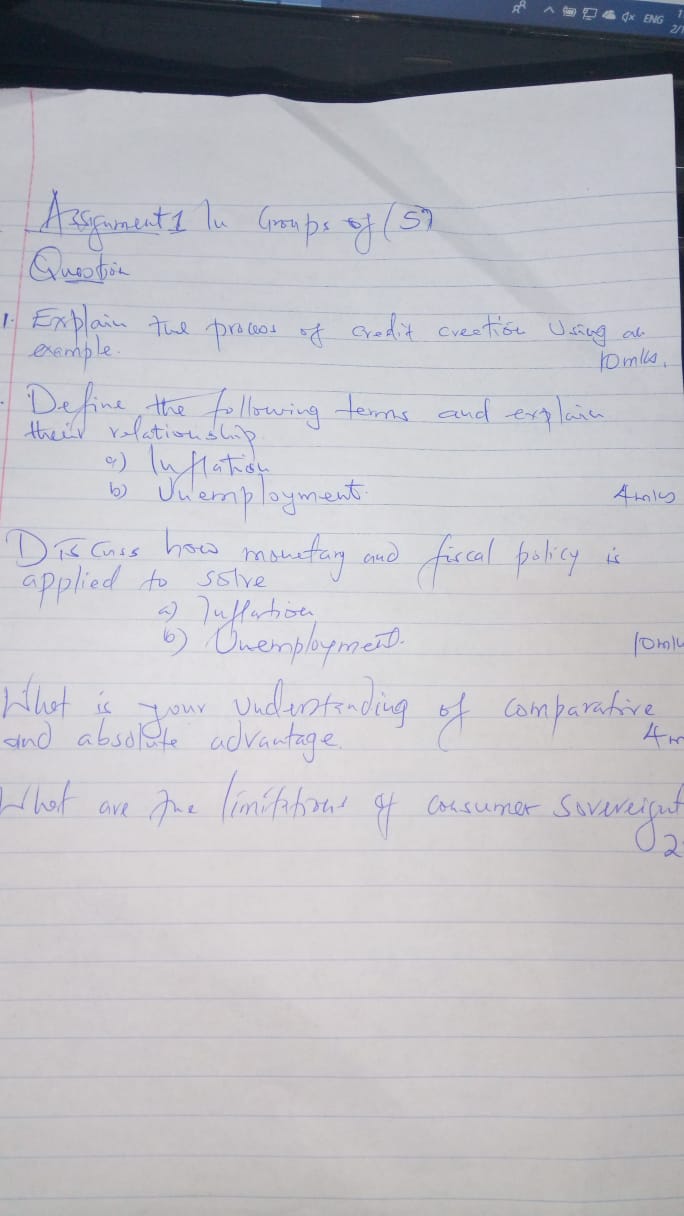 ENG
Assignment 1 In Groups of (5)
Question
1. Explain the process of credit creation Using an
example. 10mks.
Define the following terms and explain
their relationship
a) Inflation
b) Unemployment. 4mks
Discuss how monetary and fiscal policy is
applied to solve
a) Inflation
b) Unemployment. 10mk
What is your understanding of comparative
and absolute advantage. 4m
What are the limitations of consumer Sovereignt
2